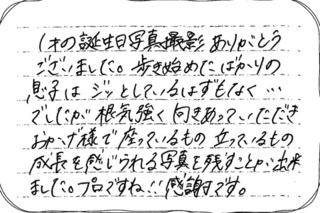 1才の誕生日写真撮影 ありがとう
ございました。歩き始めたばかりの
息子は ジッとしているはずもなく…
でしたが 根気強く 向きあっていただき
おかげ様で 座っているもの 立っているもの
成長を感じられる写真を残すことが出来
ました。プロですね!! 感謝です。